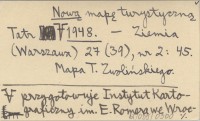 Nową mapę turystyczną
Tatr 1948. — Ziemia
(Warszawa) 27 (39), nr 2: 45.
Mapa T. Zwolińskiego.
V przygotowuje Instytut Karto-
graficzny im. E. Romera we Wroc-